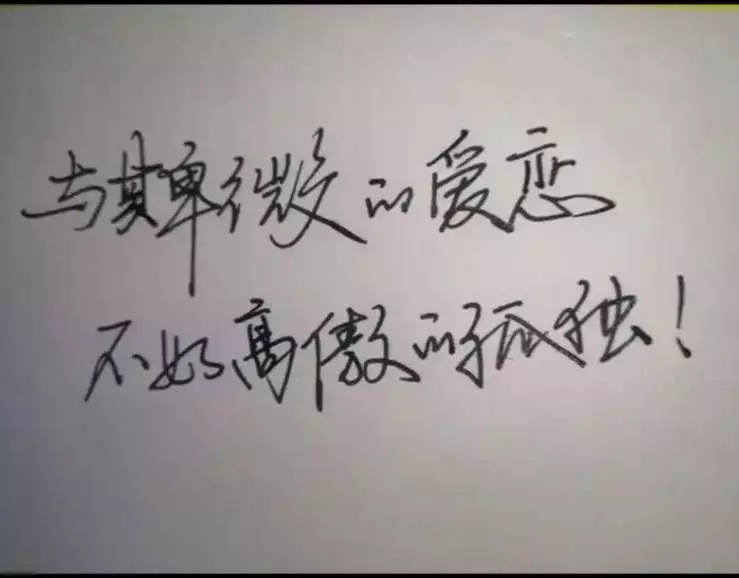 与其卑微的爱恋
不如高傲的孤独！